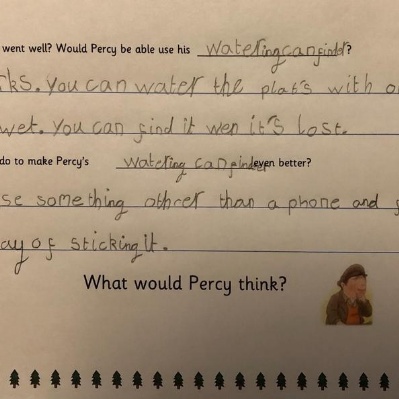 went well? Would Percy be able use his wateringcanfinder?
ks. You can water the plats with o
wet. you can find it wen it's lost.
do to make Percy's watering canfinder even better?
se something othrer than a phone and f
ay of sticking it.
What would Percy think?